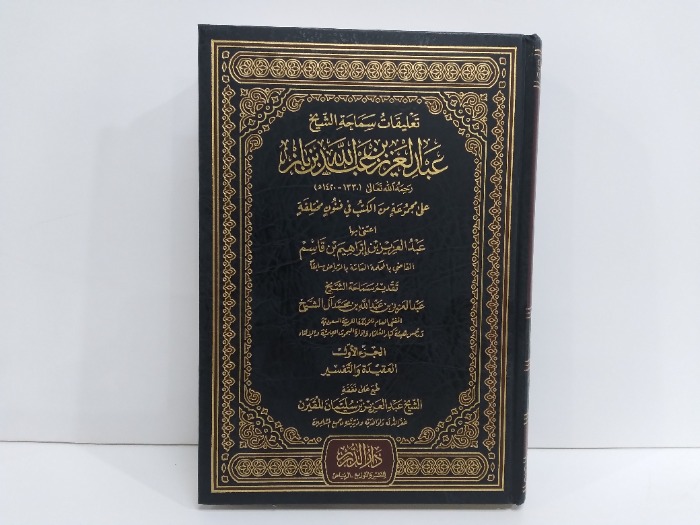 تعليقات سماحة الشيخ
عبد العزيز بن عبد الله بن باز
رحمه الله تعالى (١٣٣٠ - ١٤٢٠ه)
على مجموعة من الكتب في فنون مختلفة
اعتنى بها
عبد العزيز بن إبراهيم بن قاسم
القاضي بالمحكمة العامة بالرياض سابقاً
تقديم سماحة الشيخ
عبد العزيز بن عبد الله بن محمد آل الشيخ
المفتي العام للمملكة العربية السعودية
ورئيس هيئة كبار العلماء وإدارة البحوث العلمية والإفتاء
الجزء الأول
العقيدة والتفسير
طبع على نفقة
الشيخ عبد العزيز بن سليمان المقيرن
غفر الله له ولوالديه وذريته ولجميع المسلمين
دار الدرر
للنشر والتوزيع - الرياض